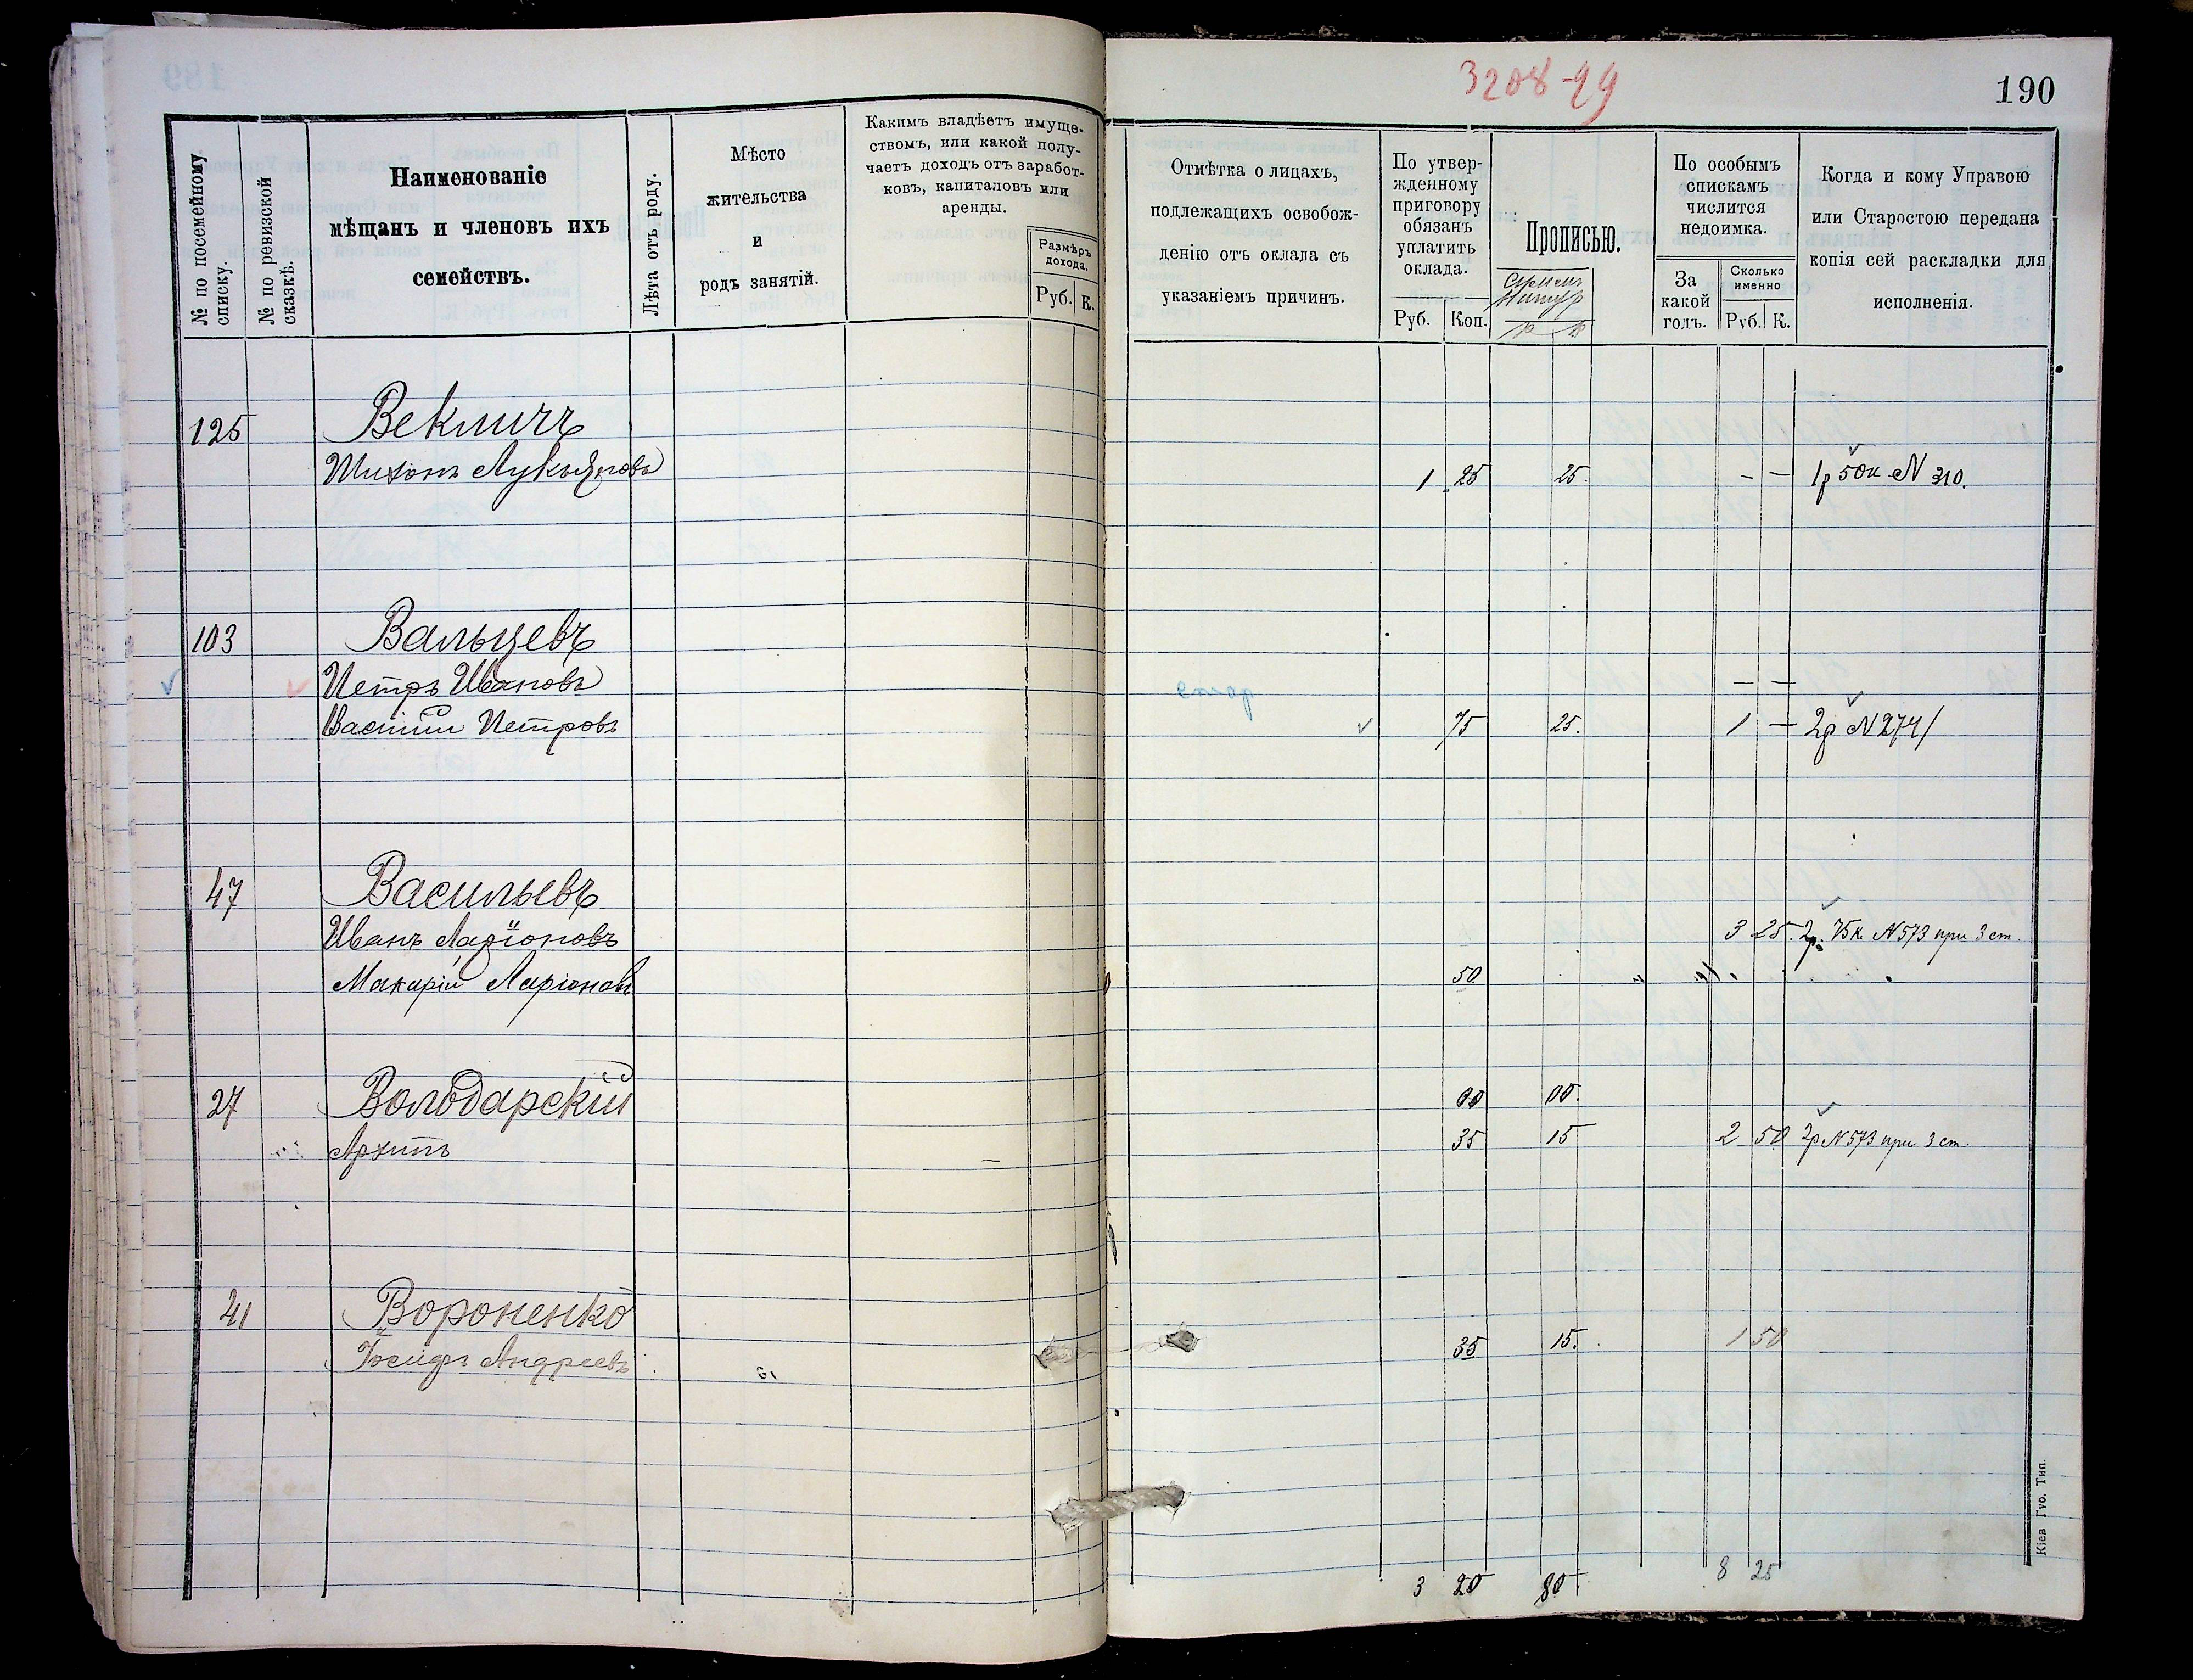 3208-99
190
№ по посемейному списку.
№ по ревизской сказкѣ.
Наименованіе
мѣщанъ и членовъ ихъ
семействъ.
Лѣта отъ роду.
Мѣсто
жительства
и
родъ занятій.
Какимъ владѣетъ имуще-
ствомъ, или какой полу-
чаетъ доходъ отъ заработ-
ковъ, капиталовъ или
аренды.
Размѣръ
дохода.
Руб. К.
Отмѣтка о лицахъ,
подлежащихъ освобож-
денію отъ оклада съ
указаніемъ причинъ.
По утвер-
жденному
приговору
обязанъ
уплатить
оклада.
Руб. Коп.
Прописью.
По особымъ
спискамъ
числится
недоимка.
За
какой
годъ.
Сколько
именно
Руб. К.
Когда и кому Управою
или Старостою передана
копія сей раскладки для
исполненія.
125 Векличъ
Тихонъ Лукьяновъ 1 25 25. — — 1р 50к N 310.
103 Вальцевъ
Петръ Ивановъ — —
Василій Петровъ 75 25. 1 — 2р N 2741
47 Васильевъ
Иванъ Ларіоновъ 3 25. 2р. 75к. N 573 при 3 ст.
Макарій Ларіоновъ 50
27 Володарскій 00 00.
Архипъ 35 15 2 50 2р N 573 при 3 ст.
41 Вороненко
Іосифъ Андреевъ 35 15. 1 50
3 20 80. 8 25
Кіев. Гуо. Тип.